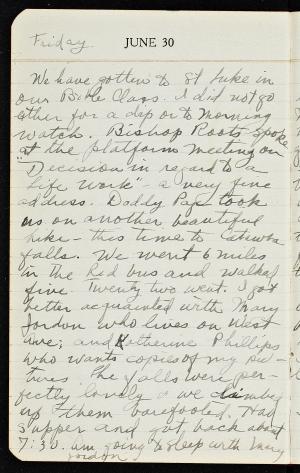 Friday
JUNE 30
We have gotten to St Luke in
our Bible Class. I did not go
either for a dip or to Morning
Watch. Bishop Roots spoke
at the platform meeting on
"Decision in regard to a
Life Work" - a very fine
address. Daddy Pap took
us on another beautiful
hike - this time to Catawba
Falls. We went 6 miles
in the Red bus and walked
five. Twenty two went. I got
better acquainted with Mary
Jordon who lives on West
Ave; and Katherine Phillips
who wants copies of my pic-
tures. The falls were per-
fectly lovely & we climbed
up them barefooted. Had
supper and got back about
7:30. Am going to sleep with Mary
Jordon